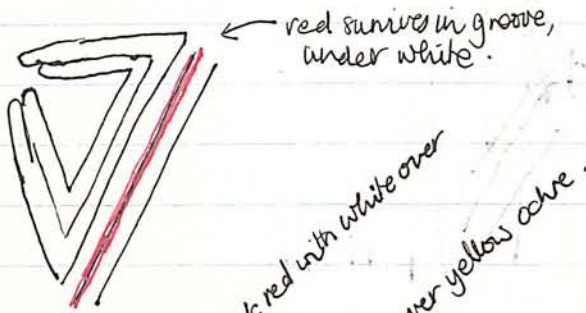 red survives in groove,
under white.
red with white over
over yellow ochre.